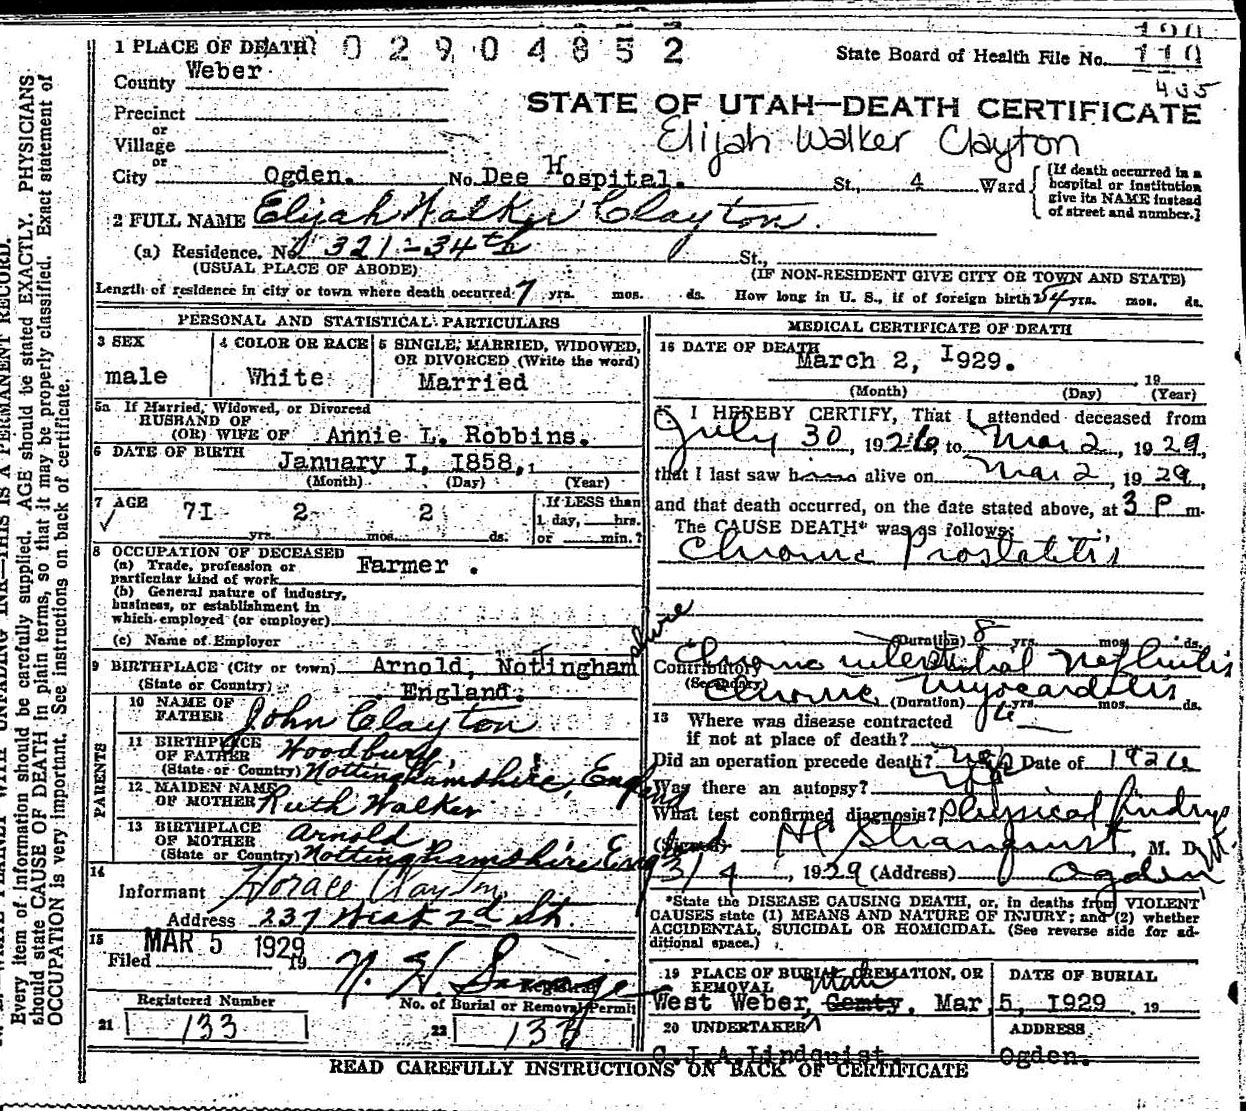 1 PLACE OF DEATH 0 2 9 0 4 8 5 2
State Board of Health File No. 110
435
County Weber
STATE OF UTAH—DEATH CERTIFICATE
Precinct
or
Village
Elijah Walker Clayton
or
City Ogden. No. Dee Hospital. St., 4 Ward
[If death occurred in a
hospital or institution
give its NAME instead
of street and number.]
2 FULL NAME Elijah Walker Clayton.
(a) Residence. No. 321-34th St.,
(USUAL PLACE OF ABODE) (IF NON-RESIDENT GIVE CITY OR TOWN AND STATE)
Length of residence in city or town where death occurred 7 yrs. mos. ds. How long in U. S., if of foreign birth 54 yrs. mos. ds.
PERSONAL AND STATISTICAL PARTICULARS
3 SEX
male
4 COLOR OR RACE
White
5 SINGLE, MARRIED, WIDOWED,
OR DIVORCED (Write the word)
Married
5a If Married, Widowed, or Divorced
HUSBAND OF
(OR) WIFE OF Annie L. Robbins.
6 DATE OF BIRTH January I, I858,
(Month) (Day) (Year)
7 AGE
7I yrs. 2 mos. 2 ds.
If LESS than
1 day, hrs.
or min.?
8 OCCUPATION OF DECEASED
(a) Trade, profession or
particular kind of work Farmer .
(b) General nature of industry,
business, or establishment in
which employed (or employer)
(c) Name of Employer
9 BIRTHPLACE (City or town) Arnold, Nottinghamshire
(State or Country) England.
PARENTS
10 NAME OF
FATHER John Clayton
11 BIRTHPLACE
OF FATHER Woodburg
(State or Country) Nottinghamshire, England
12 MAIDEN NAME
OF MOTHER Ruth Walker
13 BIRTHPLACE
OF MOTHER Arnold
(State or Country) Nottinghamshire Eng
14
Informant Horace Clayton,
Address 237 West 2d St.
15
Filed MAR 5 1929 19
N. H. Savage
Registrar
Registered Number
21 133
No. of Burial or Removal Permit
22 133
MEDICAL CERTIFICATE OF DEATH
16 DATE OF DEATH
March 2, I929.
, 19
(Month) (Day) (Year)
17 I HEREBY CERTIFY, That I attended deceased from
July 30, 1926, to Mar 2, 1929,
that I last saw him alive on Mar 2, 1929,
and that death occurred, on the date stated above, at 3 P m.
The CAUSE DEATH* was as follows:
Chronic Prostatitis
(Duration) 8 yrs. mos. ds.
Contributory Chronic interstitial Nephritis
(Secondary) Chronic Myocarditis
(Duration) yrs. mos. ds.
18 Where was disease contracted
if not at place of death?
Did an operation precede death? yes Date of 1926
Was there an autopsy?
What test confirmed diagnosis? Physical findings
(Signed) Stranquist, M. D.
3/4, 1929 (Address) Ogden
*State the DISEASE CAUSING DEATH, or, in deaths from VIOLENT
CAUSES state (1) MEANS AND NATURE OF INJURY; and (2) whether
ACCIDENTAL, SUICIDAL OR HOMICIDAL. (See reverse side for ad-
ditional space.)
19 PLACE OF BURIAL, CREMATION, OR
REMOVAL Utah
West Weber, Cemty, Mar
DATE OF BURIAL
5, I929 19
20 UNDERTAKER
C.J.A.Lindquist.
ADDRESS
Ogden.
READ CAREFULLY INSTRUCTIONS ON BACK OF CERTIFICATE
Every item of information should be carefully supplied. AGE should be stated EXACTLY. PHYSICIANS
should state CAUSE OF DEATH in plain terms, so that it may be properly classified. Exact statement of
OCCUPATION is very important. See instructions on back of certificate.
WRITE PLAINLY WITH UNFADING INK—THIS IS A PERMANENT RECORD.